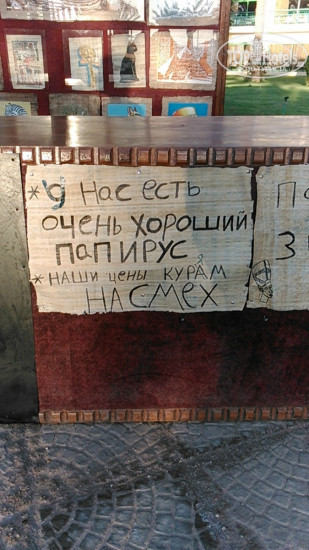 * У нас есть
очень хороший
папирус
* наши цены курам
на смех